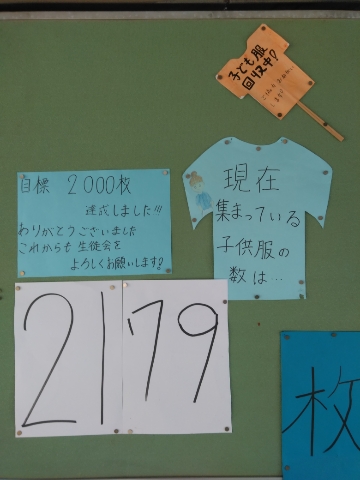 子ども服
回収中!
ご協力お願い
します!
現在
集まっている
子供服の
数は…
目標 2000枚
達成しました!!!
ありがとうございました
これからも生徒会を
よろしくお願いします!
2179
枚